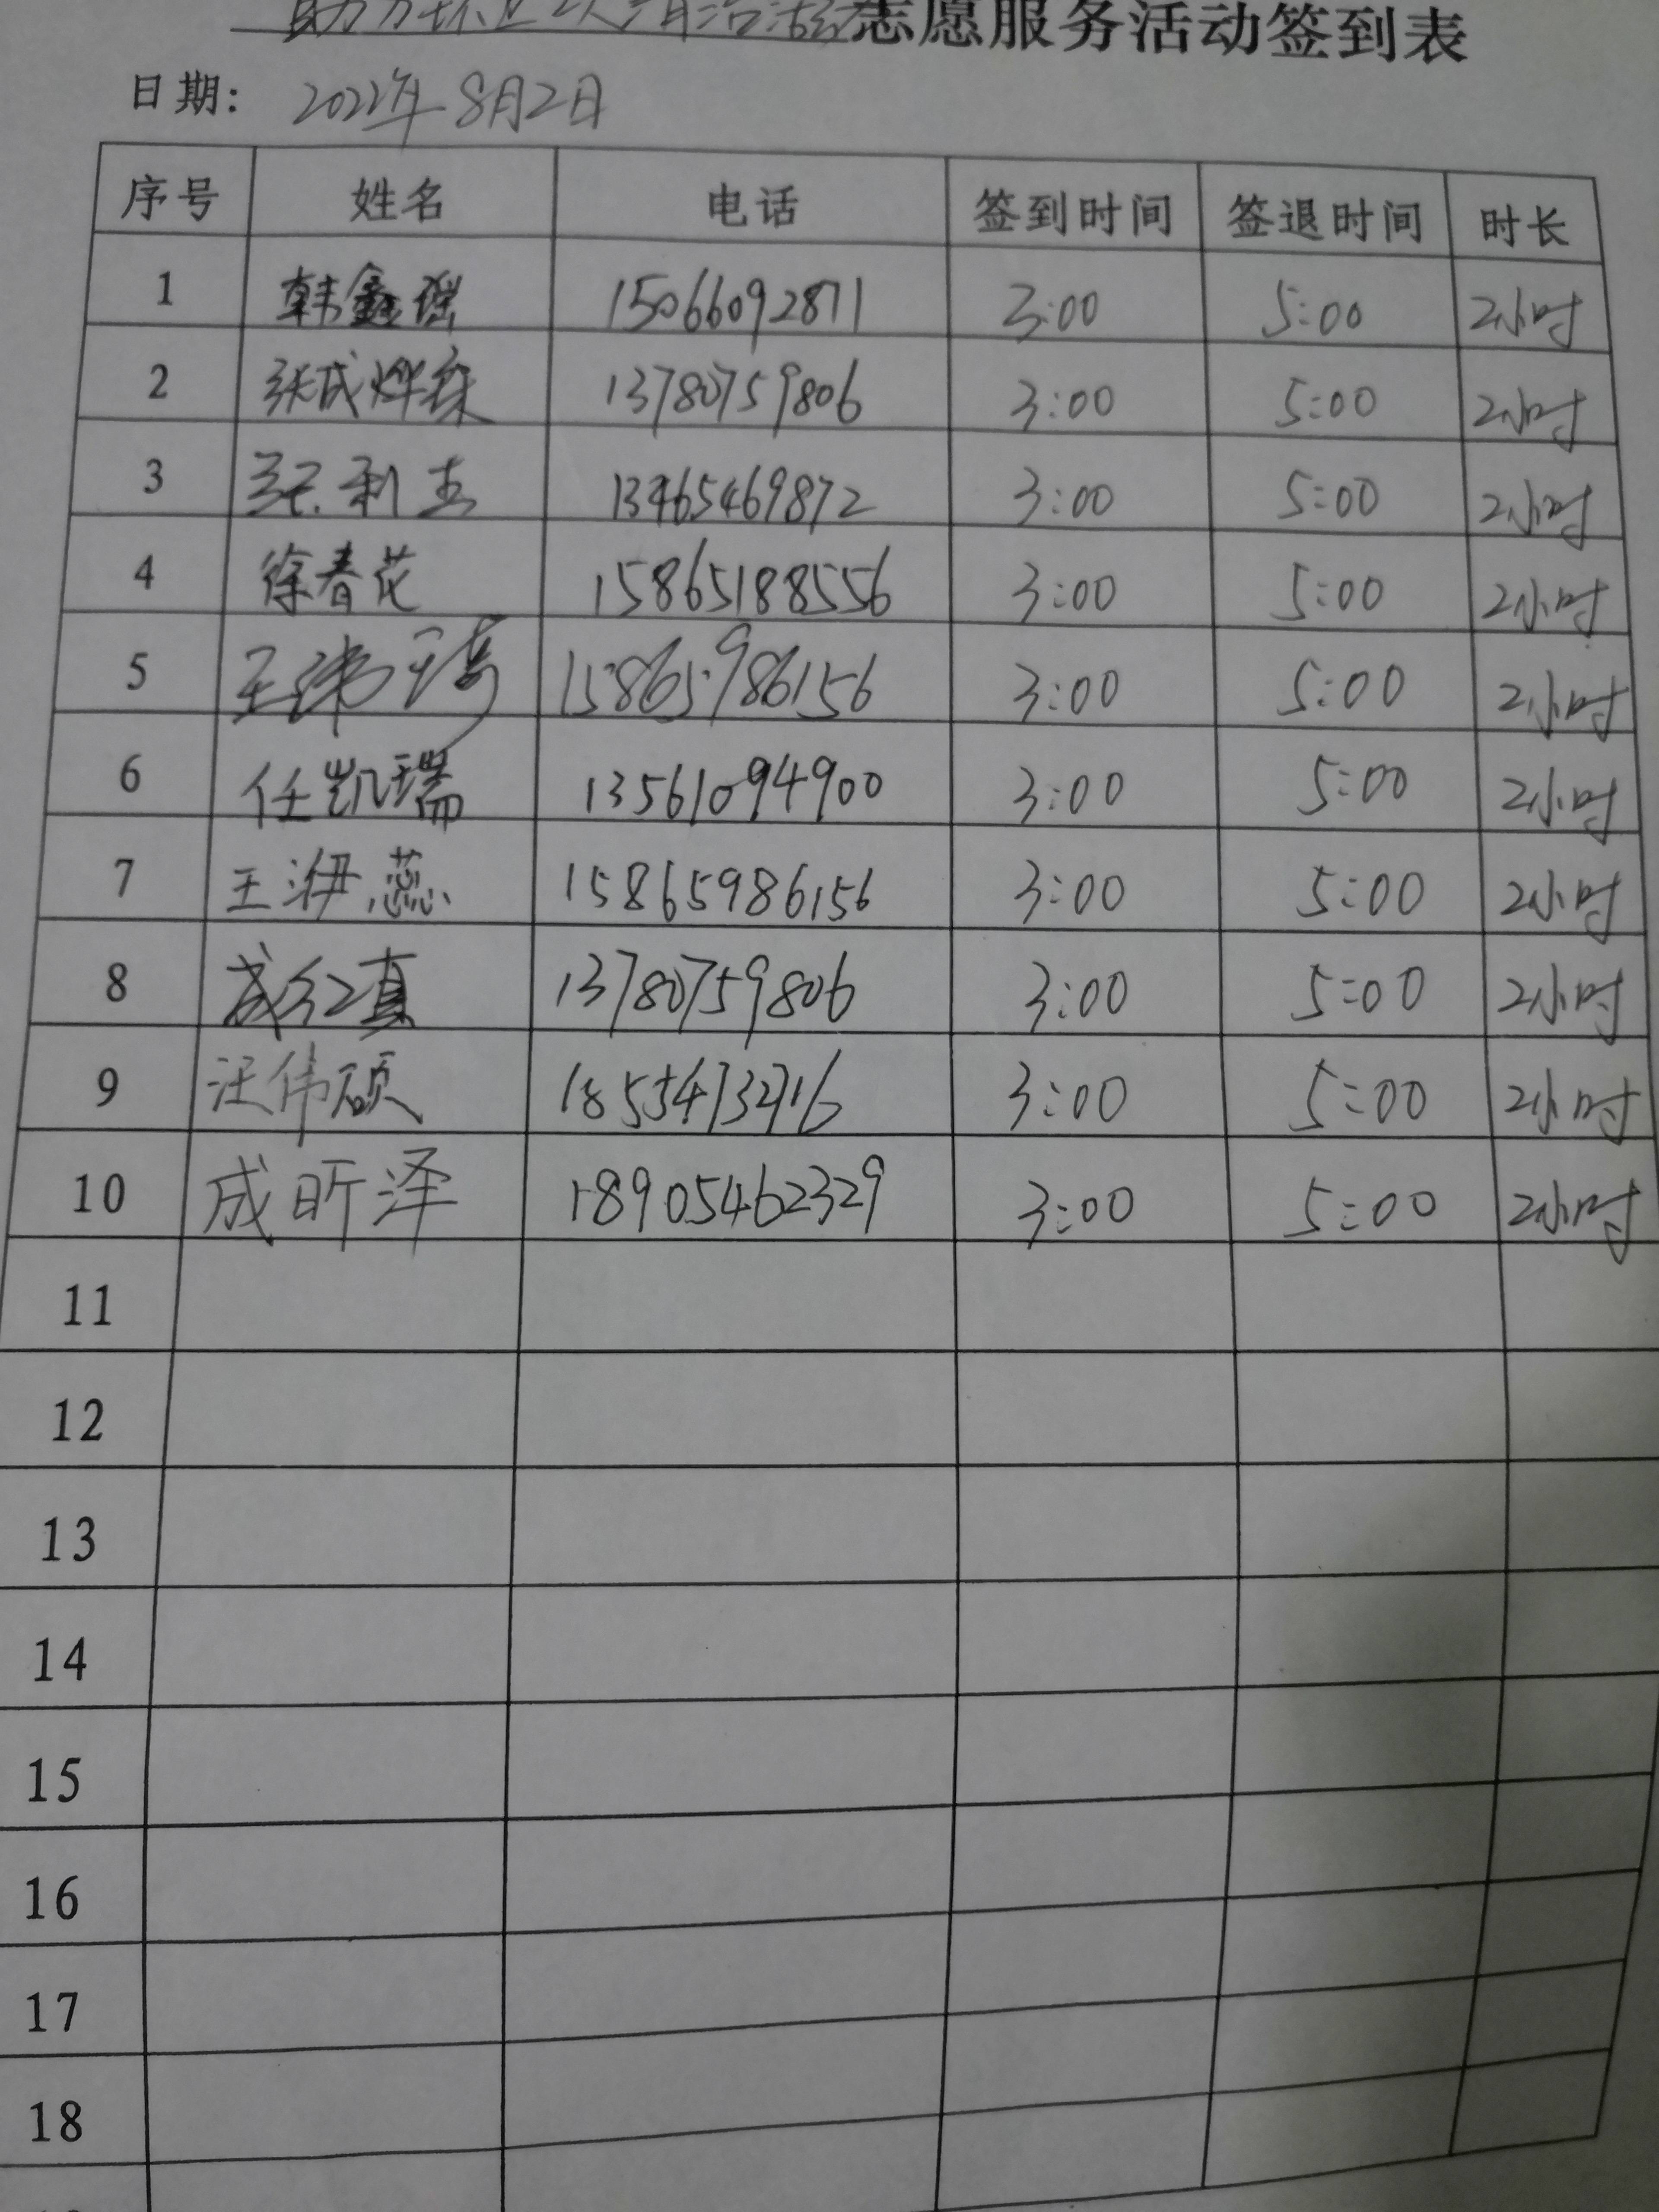 志愿服务活动签到表
日期: 2022年8月2日
序号 姓名 电话 签到时间 签退时间 时长
1 韩鑫瑶 15066092871 3:00 5:00 2小时
2 张成烨 13780759806 3:00 5:00 2小时
3 张利 13465469872 3:00 5:00 2小时
4 徐春花 15865188556 3:00 5:00 2小时
5 王 15865986156 3:00 5:00 2小时
6 任凯瑞 13561094900 3:00 5:00 2小时
7 王洢蕊 15865986156 3:00 5:00 2小时
8 成红真 13780759806 3:00 5:00 2小时
9 汪伟硕 3:00 5:00 2小时
10 成昕泽 18905462329 3:00 5:00 2小时
11
12
13
14
15
16
17
18